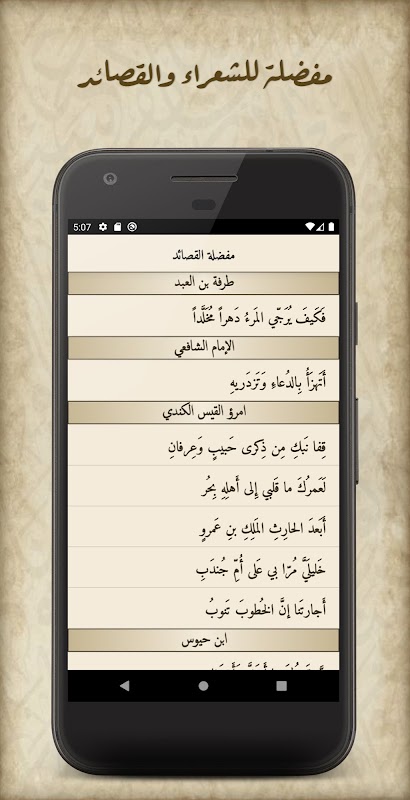 مفضلة للشعراء والقصائد
5:07
مفضلة القصائد
طرفة بن العبد
فَكَيفَ يُرَجّي المَرءُ دَهراً مُخَلَّداً
الإمام الشافعي
أَتَهزَأُ بِالدُعاءِ وَتَزدَريهِ
امرؤ القيس الكندي
قِفا نَبكِ مِن ذِكرى حَبيبٍ وَعِرفانِ
لَعَمرُكَ ما قَلبي إِلى أَهلِهِ بِحُر
أَبَعدَ الحارِثِ المَلِكِ بنِ عَمروٍ
خَليلَيَّ مُرّا بي عَلى أُمِّ جُندَبِ
أَجارَتَنا إِنَّ الخُطوبَ تَنوبُ
ابن حيوس